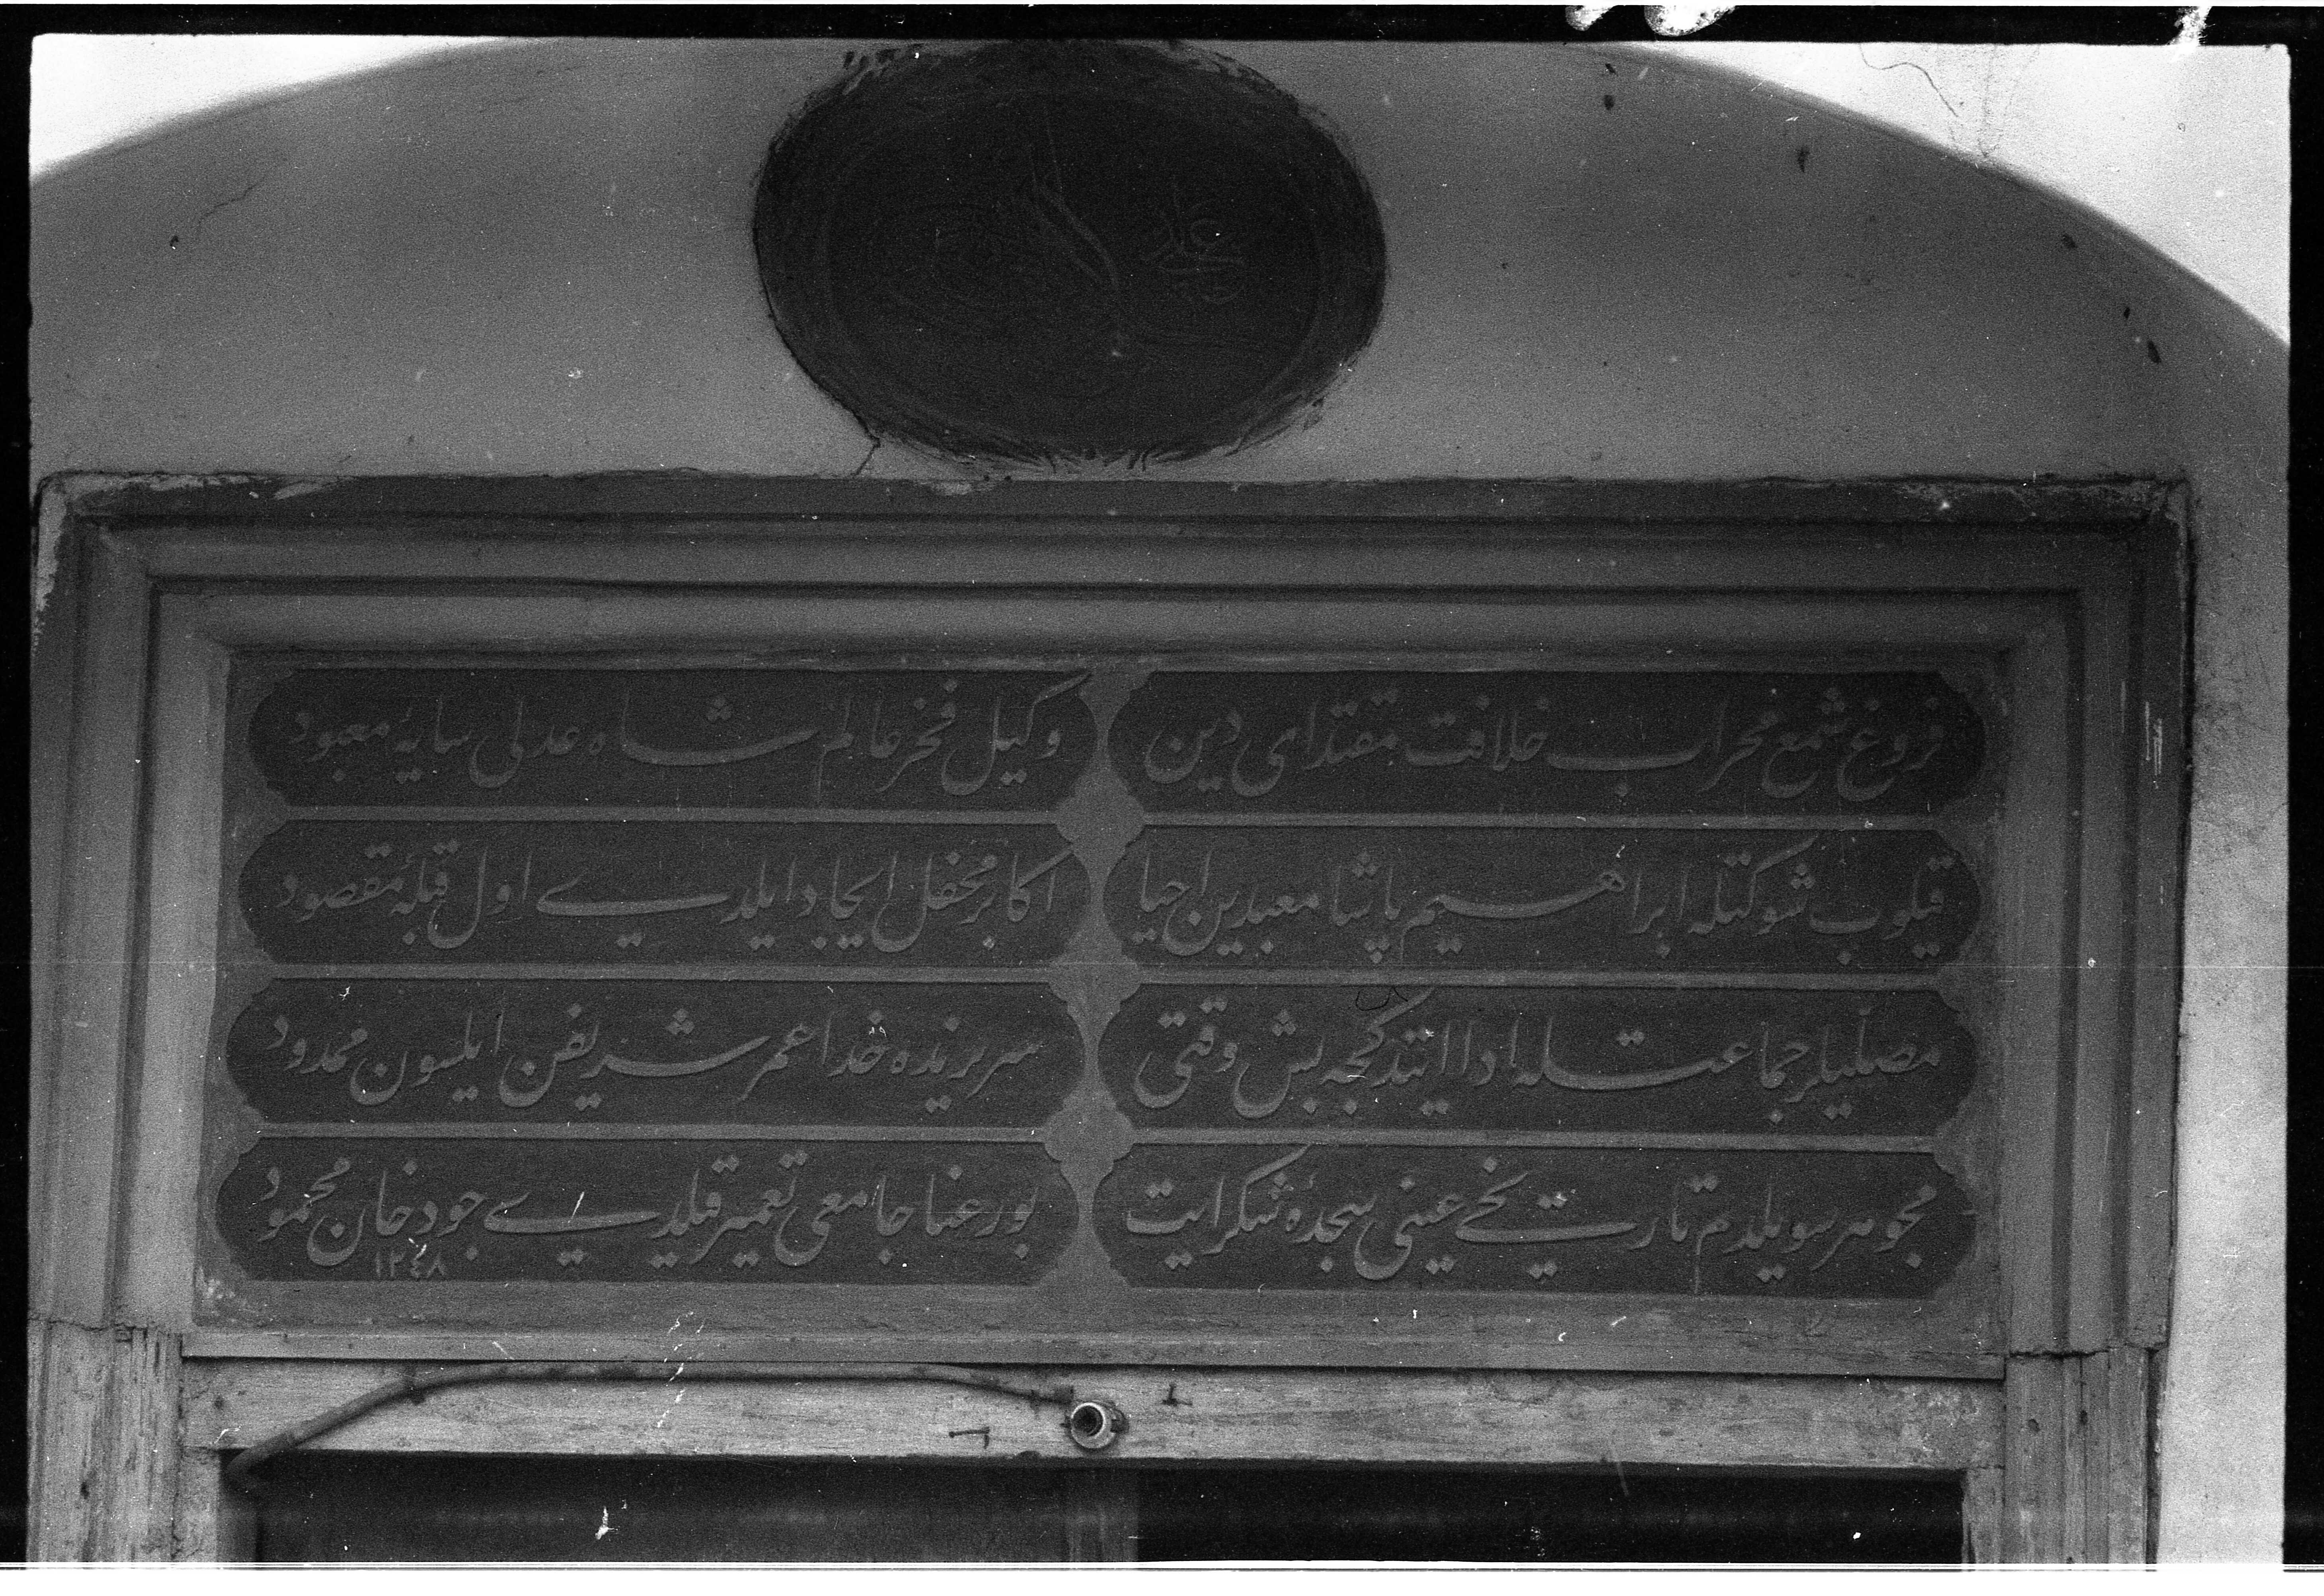 عدلی
فروغ شمع محراب خلافت مقتدای دین
وکیل فخر عالم شاه عدلی سایهٔ معبود
قیلوب شوکتله ابراهیم پاشا معبدین احیا
اکابر محفل ایجاد ایلدی اول قبلهٔ مقصود
مصلیلر جماعتله ادا ایتدکجه بش وقتی
سریرنده خدا عمر شریفن ایلسون ممدود
مجوهر سویلدم تاریخی عینی سجدهٔ شکر ایت
بو رعنا جامعی تعمیر قیلدی جود خان محمود
١٢٤٨